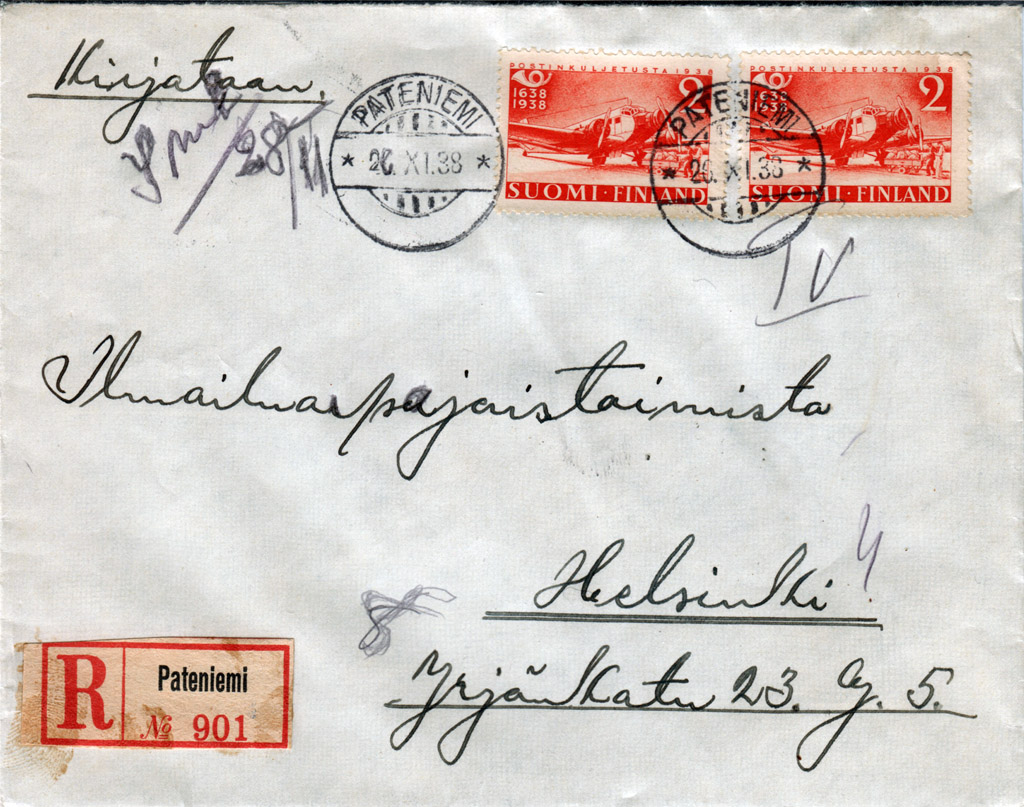 Kirjataan.
28/11
PATENIEMI
* 26.XI.38 *
POSTINKULJETUSTA 1938
1638
1938
2
SUOMI-FINLAND
PATENIEMI
* 26.XI.38 *
POSTINKULJETUSTA 1938
1638
1938
2
SUOMI-FINLAND
IV
Ilmailuarpajaistoimisto
Helsinki
Yrjönkatu 23. G. 5.
R
Pateniemi
No 901